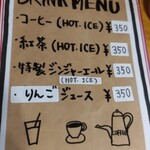 DRINK MENU
・コーヒー (HOT. ICE) ¥350
・紅茶 (HOT. ICE) ¥350
・特製ジンジャーエール ¥350
(HOT. ICE)
・りんごジュース ¥350
COFFEE